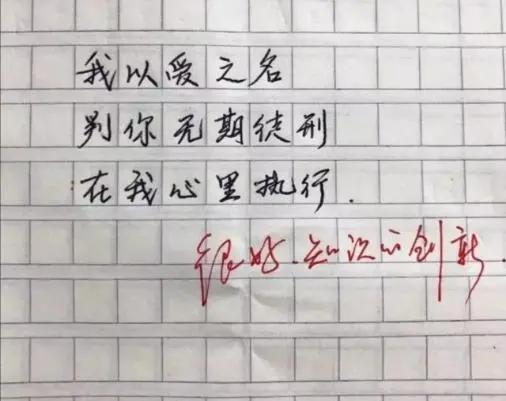 我以爱之名
判你无期徒刑
在我心里执行.
很好.知识的创新.